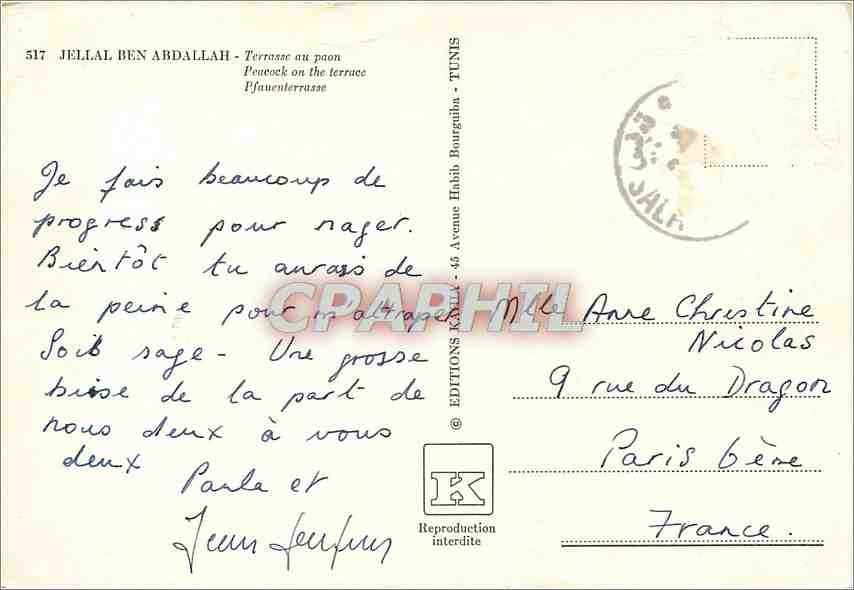 517 JELLAL BEN ABDALLAH - Terrasse au paon
Peacock on the terrace
Pfauenterrasse
Je fais beaucoup de
progress pour nager.
Bientôt tu aurais de
la peine pour m'attraper
Sois sage - Une grosse
bise de la part de
nous deux à vous
deux
Paula et
Jean
© EDITIONS KAHIA - 45 Avenue Habib Bourguiba - TUNIS
CPARPHIL
K
Reproduction
interdite
Mlle Anne Christine
Nicolas
9 rue du Dragon
Paris 6ème
France.